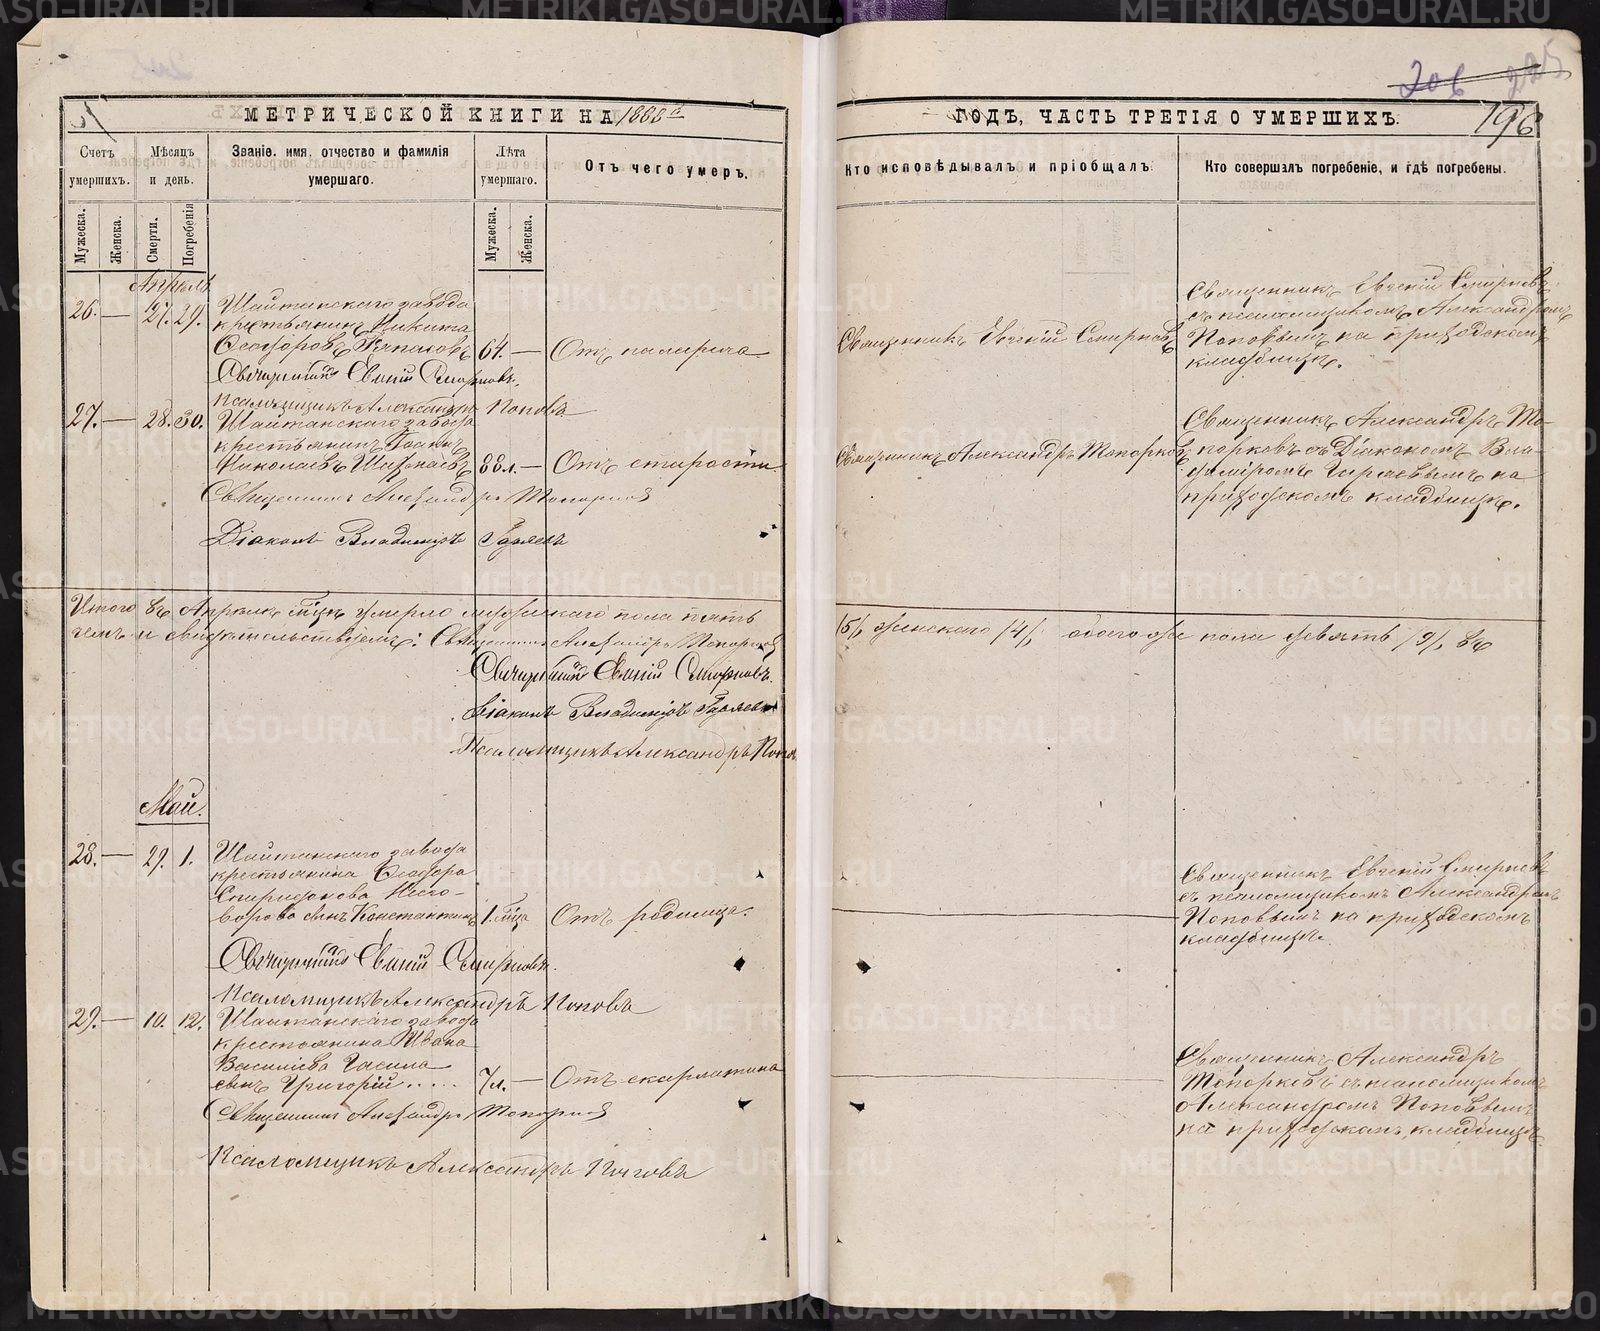 МЕТРИЧЕСКОЙ КНИГИ НА 1888й
Счетъ умершихъ.
Мѣсяцъ и день.
Званіе, имя, отчество и фамилія умершаго.
Лѣта умершаго.
Отъ чего умеръ.
Мужеска.
Женска.
Смерти.
Погребенія
Мужеска.
Женска.
Апрѣль
26. — 27. 29. Шайтанскаго завода
крестьянинъ Никита
Ѳеодоровъ 64. — Отъ паралича
Священникъ Евгеній Смирновъ.
Псаломщикъ Александръ Поповъ
27. — 28. 30. Шайтанскаго завода
крестьянинъ Іоаннъ
Николаевъ 88 л. — Отъ старости
Священникъ Александръ Топорковъ
Діаконъ Владиміръ Гаряевъ
Итого въ Апрѣлѣ м͠цѣ умерло мужескаго пола пять
чемъ и свидѣтельствуемъ: Священникъ Александръ Топорковъ
Священникъ Евгеній Смирновъ.
Діаконъ Владиміръ Гаряевъ
Псаломщикъ Александръ Поповъ
Май.
28. — 29. 1. Шайтанскаго завода
крестьянина Ѳеодора
Спиридонова
сынъ Константинъ 1. м͠ца Отъ родимца.
Священникъ Евгеній Смирновъ.
Псаломщикъ Александръ Поповъ
29. — 10. 12. Шайтанскаго завода
крестьянина Ивана
Василіева
сынъ Григорій..... 7 л. — Отъ скарлатина
Священникъ Александръ Топорковъ
Псаломщикъ Александръ Поповъ
206
196
ГОДЪ, ЧАСТЬ ТРЕТІЯ О УМЕРШИХЪ.
Кто исповѣдывалъ и пріобщалъ
Кто совершалъ погребеніе, и гдѣ погребены.
Священникъ Евгеній Смирновъ
Священникъ Евгеній Смирновъ
съ псаломщикомъ Александромъ
Поповымъ на приходскомъ
кладбищѣ.
Священникъ Александръ Топорковъ
Священникъ Александръ То-
порковъ съ Діакономъ Вла-
диміромъ Гаряевымъ на
приходскомъ кладбищѣ.
/5/, женскаго /4/, обоего же пола девять /9/, въ
Священникъ Евгеній Смирновъ
съ псаломщикомъ Александромъ
Поповымъ на приходскомъ
кладбищѣ.
Священникъ Александръ
Топорковъ съ псаломщикомъ
Александромъ Поповымъ
на приходскомъ кладбищѣ.
METRIKI.GASO-URAL.RU